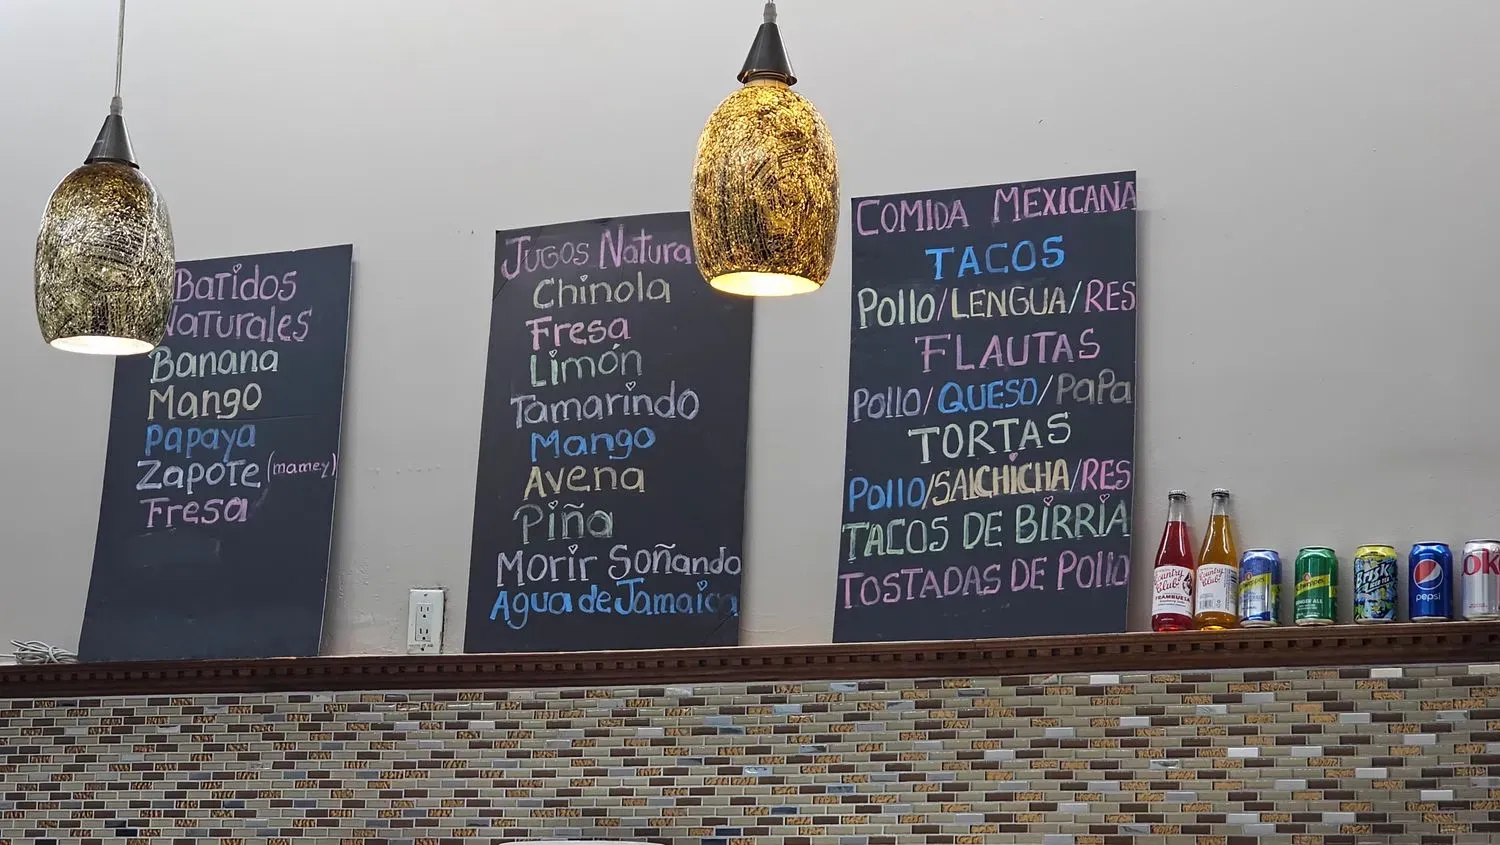 Batidos
Naturales
Banana
Mango
Papaya
Zapote (mamey)
Fresa
Jugos Natura
Chinola
Fresa
Limón
Tamarindo
Mango
Avena
Piña
Morir Soñando
Agua de Jamaica
COMIDA MEXICANA
TACOS
Pollo/LENGUA/RES
FLAUTAS
Pollo/QUESO/PAPA
TORTAS
Pollo/SALCHICHA/RES
TACOS DE BIRRIA
TOSTADAS DE Pollo
Country
Club
FRAMBUESA
Country
Club
GINGER ALE
Brisk
pepsi
ok